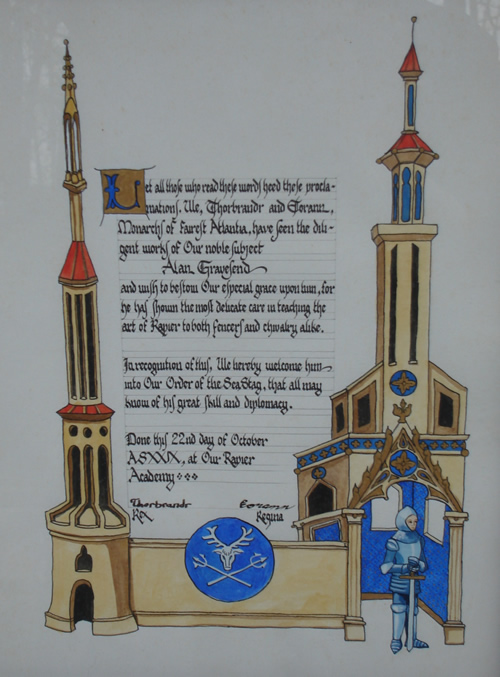 Let all those who read these words heed these procla-
mations. We, Thorbrandr and Eorann,
Monarchs of Fairest Atlantia, have seen the dili-
gent works of Our noble subject
Alan Gravesend
and wish to bestow Our especial grace upon him, for
he has shown the most delicate care in teaching the
art of Rapier to both fencers and chivalry alike.
In recognition of this, We hereby welcome him
into Our Order of the Sea Stag, that all may
know of his great skill and diplomacy.
Done this 22nd day of October
A.S. XXIX, at Our Rapier
Academy
Thorbrandr Eorann
Rex Regina